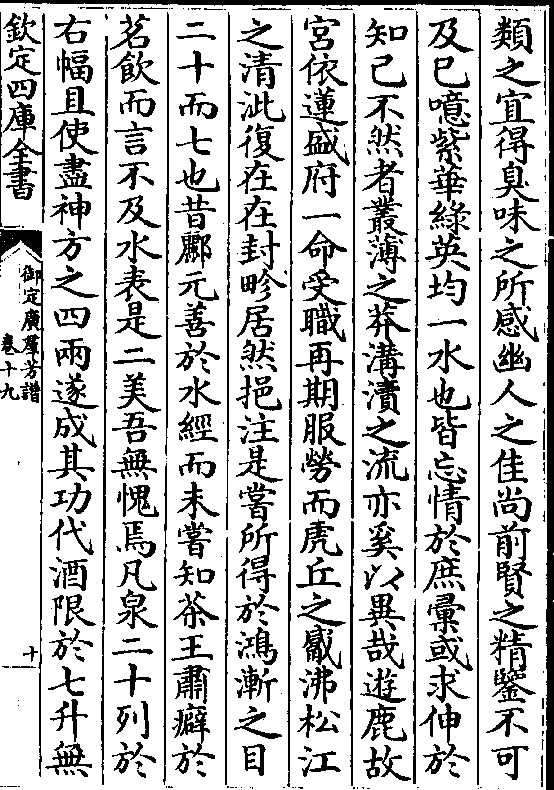 類之宜得臭味之所感幽人之佳尚前賢之精鑒不可
及巳噫紫華綠英均一水也皆忘情於庶彚或求伸於
知己不然者叢薄之莽溝瀆之流亦奚以異哉遊鹿故
宮依蓮盛府一命受職再期服勞而虎丘之觱沸松江
之清泚復在在封畛居然挹注是嘗所得於鴻漸之目
二十而七也昔酈元善於水經而未嘗知茶王肅癖於
茗飲而言不及水表是二美吾無愧焉凡泉二十列於
右幅且使盡神方之四兩遂成其功代酒限於七升無
欽定四庫全書
御定廣羣芳譜
卷十九
十